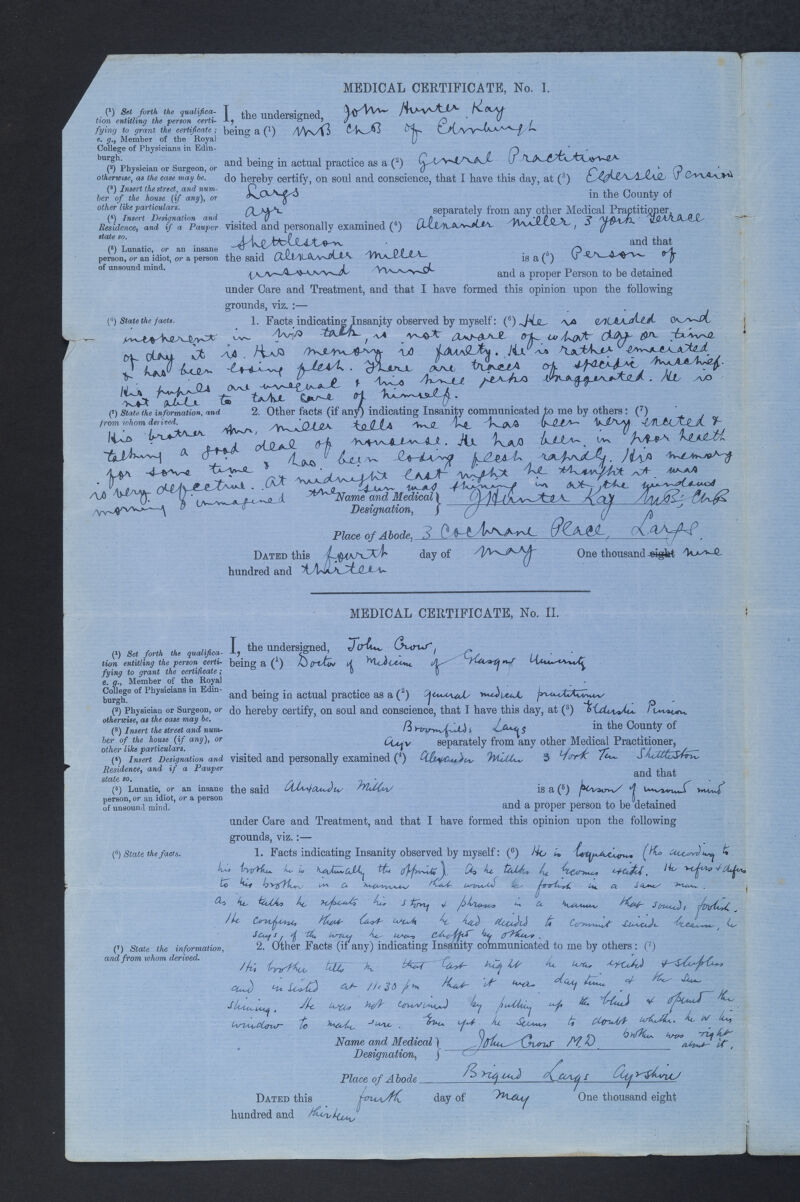 MEDICAL CERTIFICATE, No. I.
(1) Set forth the qualifica-
tion entitling the person certi-
fying to grant the certificate;
e. g., Member of the Royal
College of Physicians in Edin-
burgh.
(2) Physician or Surgeon, or
otherwise, as the case may be.
(3) Insert the street, and num-
ber of the house (if any), or
other like particulars.
(4) Insert Designation and
Residence, and if a Pauper
state so.
(5) Lunatic, or an insane
person, or an idiot, or a person
of unsound mind.
I, the undersigned, John Hunter Kay
being a (1) MB ChB of Edinburgh
and being in actual practice as a (2) General Practitioner
do hereby certify, on soul and conscience, that I have this day, at (3) Elderslie Pension
Largs in the County of
Ayr separately from any other Medical Practitioner,
visited and personally examined (4) Alexander Miller, 3 York Terrace
Shettleston and that
the said Alexander Miller is a (5) Person of
unsound mind and a proper Person to be detained
under Care and Treatment, and that I have formed this opinion upon the following
grounds, viz. :—
(6) State the facts.
1. Facts indicating Insanity observed by myself: (6) He is excided and
incoherent in his talk, is not aware of what day or time
of day it is. His memory is faulty. He is rather emaciated
& has been losing flesh. There are traces of specific mischief.
His pupils are unequal & his knee jerks exaggerated. He is
not able to take care of himself.
(7) State the information, and
from whom derived.
2. Other facts (if any) indicating Insanity communicated to me by others: (7)
His brother Miller tells me he has been very excited &
talking a good deal of nonsense. He has been in poor health
for some time & has been losing flesh rapidly. His memory
is very defective. At midnight last night he thought it was
morning & immagined the sun was shining in at the windows
Name and Medical Designation, J Hunter Kay MB; ChB
Place of Abode, 3 Cochrane Place, Largs.
DATED this fourth day of May One thousand eight nine
hundred and thirteen
MEDICAL CERTIFICATE, No. II.
(1) Set forth the qualifica-
tion entitling the person certi-
fying to grant the certificate;
e. g., Member of the Royal
College of Physicians in Edin-
burgh.
(2) Physician or Surgeon, or
otherwise, as the case may be.
(3) Insert the street and num-
ber of the house (if any), or
other like particulars.
(4) Insert Designation and
Residence, and if a Pauper
state so.
(5) Lunatic, or an insane
person, or an idiot, or a person
of unsound mind.
I, the undersigned, John Crow,
being a (1) Doctor of Medicine of Glasgow University
and being in actual practice as a (2) general medical practitioner
do hereby certify, on soul and conscience, that I have this day, at (3) Elderslie Pension
Broomfields Largs in the County of
Ayr separately from any other Medical Practitioner,
visited and personally examined (4) Alexander Miller 3 York Ter Shettleston
and that
the said Alexander Miller is a (5) person of unsound mind
and a proper person to be detained
under Care and Treatment, and that I have formed this opinion upon the following
grounds, viz. :—
(6) State the facts.
1. Facts indicating Insanity observed by myself: (6) He is loquacious (tho according to
his brother he is naturally the opposite). As he talks he becomes excited. He refers & defers
to his brother in a manner that would be foolish in a sane man.
As he talks he repeats his story & phrases in a manner that sounds foolish.
He confesses that last week he had decided to commit suicide because, he
says, of the way he was chaffed by others.
(7) State the information,
and from whom derived.
2. Other Facts (if any) indicating Insanity communicated to me by others: (7)
His brother tells me that last night he was excited & sleepless
and insisted at 11.30 pm that it was day time & the sun
shining. He was not convinced by pulling up the blind & opened the
window to make sure. Even yet he seems to doubt whether he or his
brother was right about it.
Name and Medical Designation, John Crow M.D.
Place of Abode Brigend Largs Ayrshire
DATED this fourth day of May One thousand eight
hundred and thirteen